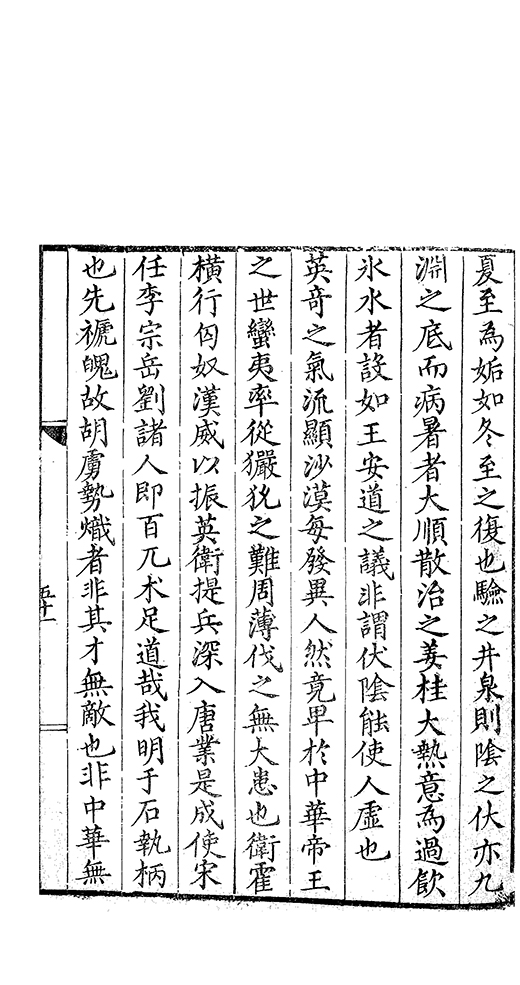 夏至為姤如冬至之復也驗之井泉則陰之伏亦九
淵之底而病暑者大順散冶之姜桂大熱意為過飲
氷水者設如王安道之議非謂伏陰能使人虛也
英奇之氣流顯沙漠每發異人然竟卑於中華帝王
之世蠻夷率從玁狁之難周薄伐之無大患也衛霍
橫行匈奴漢威以振英衛提兵深入唐業是成使宋
任李宗岳劉諸人即百兀朮足道哉我明于石執柄
也先褫魄故胡虜勢熾者非其才無敵也非中華無
五十一